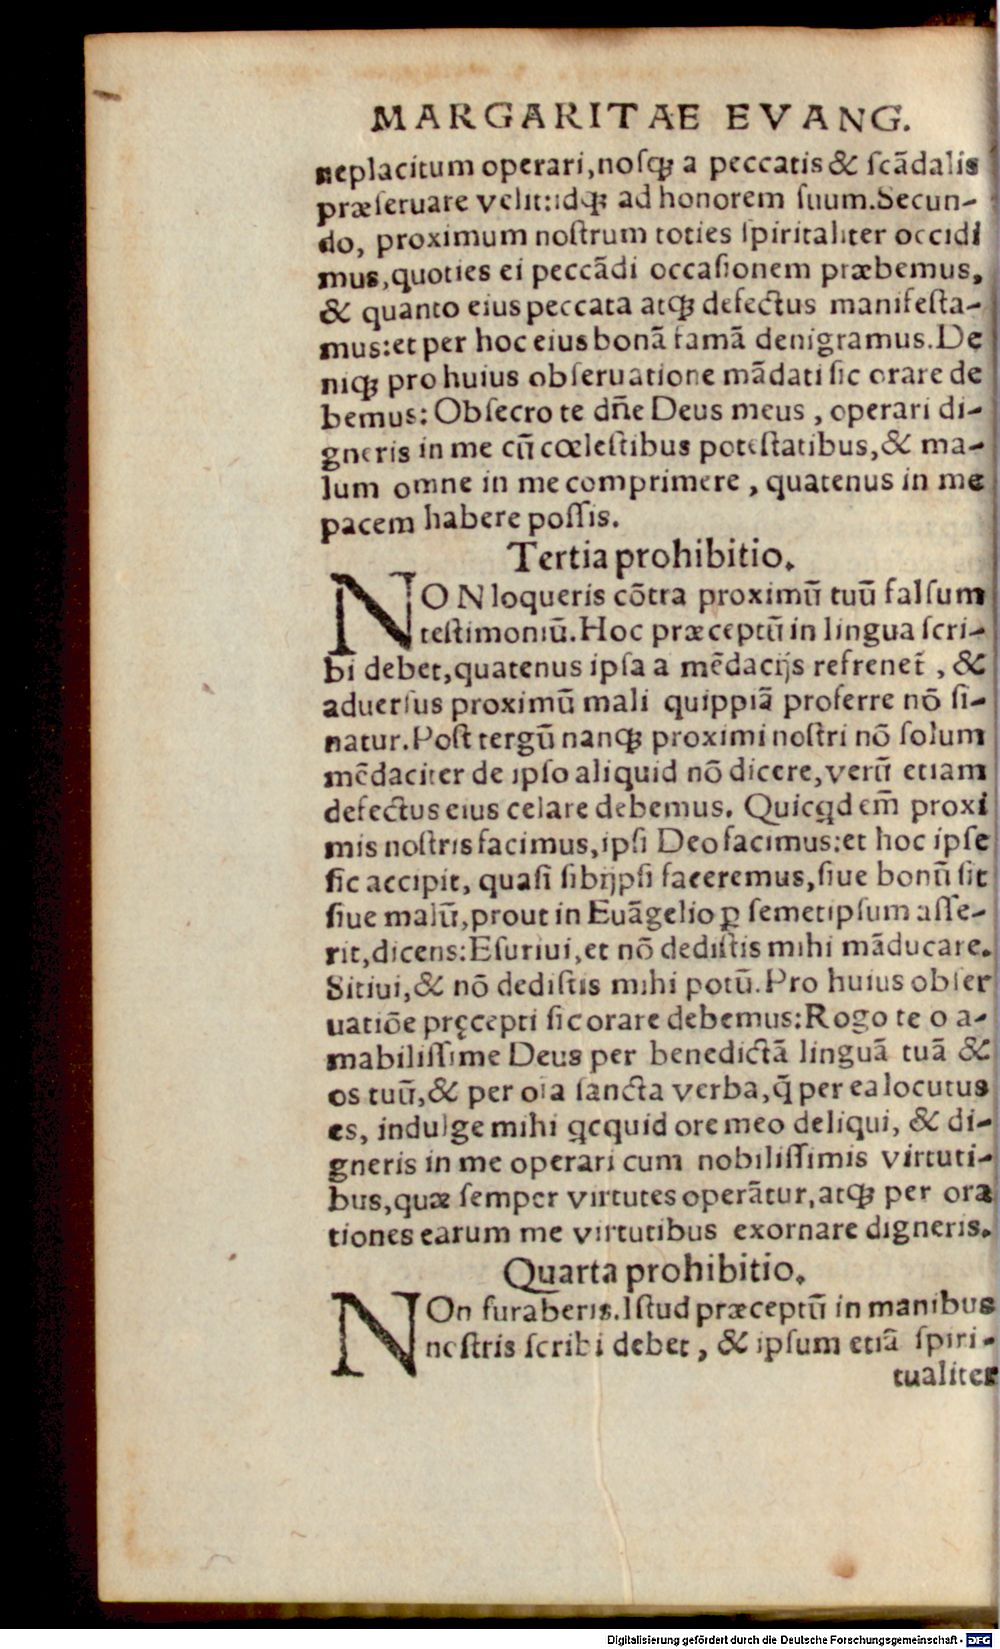 MARGARITAE EVANG.
neplacitum operari, nosq́ꝫ a peccatis & scãdalis
præseruare velit: idq́ꝫ ad honorem suum. Secun-
do, proximum nostrum toties spiritaliter occidi
mus, quoties ei peccãdi occasionem præbemus,
& quanto eius peccata atq́ꝫ defectus manifesta-
mus: et per hoc eius bonã famã denigramus. De
niq́ꝫ pro huius obseruatione mãdati sic orare de
bemus: Obsecro te dñe Deus meus, operari di-
gneris in me cũ cœlestibus potestatibus, & ma-
lum omne in me comprimere, quatenus in me
pacem habere possis.
Tertia prohibitio.
NON loqueris cõtra proximũ tuũ falsum
testimoniũ. Hoc præceptũ in lingua scri-
bi debet, quatenus ipsa a mẽdacijs refrenet̃, &
aduersus proximũ mali quippiã proferre nõ si-
natur. Post tergũ nanq́ꝫ proximi nostri nõ solum
mẽdaciter de ipso aliquid nõ dicere, verũ etiam
defectus eius celare debemus. Quicqd em̃ proxi
mis nostris facimus, ipsi Deo facimus: et hoc ipse
sic accipit, quasi sibijpsi faceremus, siue bonũ sit
siue malũ, prout in Euãgelio ꝑ semetipsum asse-
rit, dicens: Esuriui, et nõ dedistis mihi mãducare.
Sitiui, & nõ dedistis mihi potũ. Pro huius obser
uatiõe pręcepti sic orare debemus: Rogo te o a-
mabilissime Deus per benedictã linguã tuã &
os tuũ, & per oĩa sancta verba, q̃ per ea locutus
es, indulge mihi qcquid ore meo deliqui, & di-
gneris in me operari cum nobilissimis virtuti-
bus, quæ semper virtutes operãtur, atq́ꝫ per ora
tiones earum me virtutibus exornare digneris.
Quarta prohibitio.
NOn furaberis. Istud præceptũ in manibus
nostris scribi debet, & ipsum etiã spiri-
tualiter
Digitalisierung gefördert durch die Deutsche Forschungsgemeinschaft - DFG